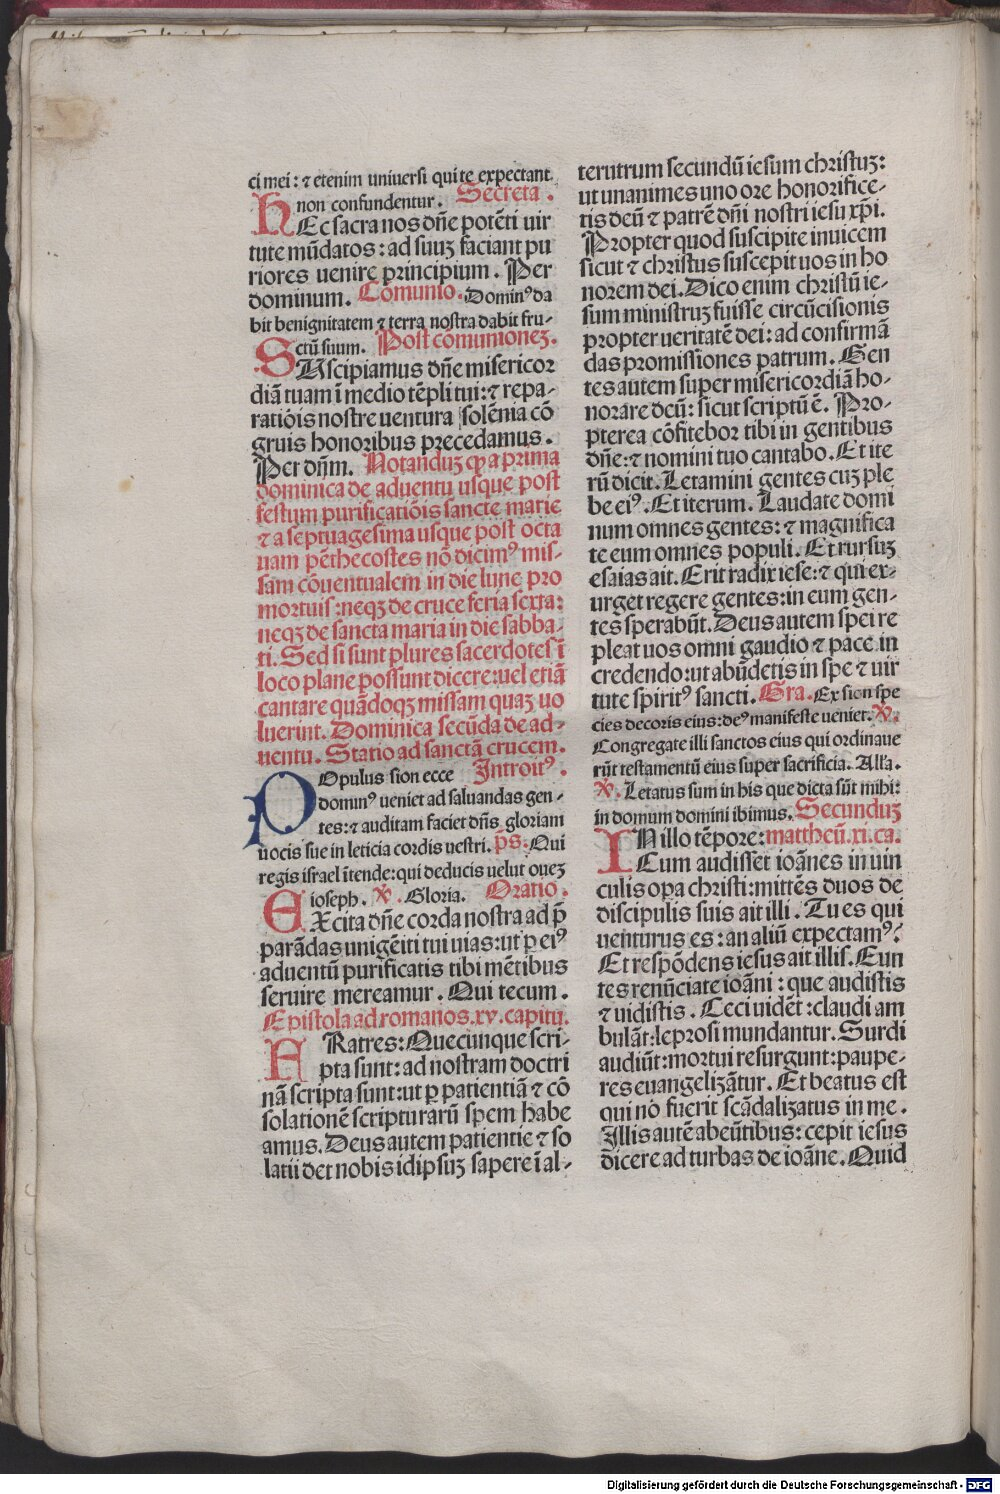 ci mei: ⁊ etenim uniuersi qui te expectant
non confundentur. Secreta.
HEc sacra nos dñe potẽti uir
tute mũdatos: ad suuꝫ faciant pu
riores uenire principium. Per
dominum. Comunio. Dominꝰ da
bit benignitatem ⁊ terra nostra dabit fru-
ctũ suum. Post comunioneꝫ.
SUscipiamus dñe misericor
diã tuam ĩ medio tẽpli tui: ⁊ repa-
ratiõis nostre uentura solẽnia cõ
gruis honoribus precedamus.
Per dñm. Notanduꝫ ꝙ a prima
dominica de aduentu usque post
festum purificatiõis sancte marie
⁊ a septuagesima usque post octa
uam pẽthecostes nõ dicimꝰ mis-
sam cõuentualem in die lune pro
mortuis: neqꝫ de cruce feria sexta:
neqꝫ de sancta maria in die sabba-
ti. Sed si sunt plures sacerdotes ĩ
loco plane possunt dicere: uel etiã
cantare quãdoqꝫ missam quaꝫ uo
luerint. Dominica secũda de ad-
uentu. Statio ad sanctã crucem.
POpulus sion ecce Introitꝰ.
dominꝰ ueniet ad saluandas gen-
tes: ⁊ auditam faciet dñs gloriam
uocis sue in leticia cordis uestri. p̃s. Qui
regis israel ĩtende: qui deducis uelut oueꝫ
ioseph. ℣. Gloria. Oratio.
EXcita dñe corda nostra ad p̃
parãdas unigẽiti tui uias: ut ꝑ eiꝰ
aduentũ purificatis tibi mẽtibus
seruire mereamur. Qui tecum.
Epistola ad romanos. xv. capitu.
FRatres: Quecunque scri-
pta sunt: ad nostram doctri
nã scripta sunt: ut ꝑ patientiã ⁊ cõ
solationẽ scripturarũ spem habe
amus. Deus autem patientie ⁊ so
latii det nobis idipsuꝫ sapere ĩ al-
terutrum secundũ iesum christuꝫ:
ut unanimes uno ore honorifice-
tis deũ ⁊ patrẽ dñi nostri iesu xp̃i.
Propter quod suscipite inuicem
sicut ⁊ christus suscepit uos in ho
norem dei. Dico enim christũ ie-
sum ministruꝫ fuisse circũcisionis
propter ueritatẽ dei: ad confirmã
das promissiones patrum. Gen
tes autem super misericordiã ho-
norare deũ: sicut scriptũ ẽ. Pro-
pterea cõfitebor tibi in gentibus
dñe: ⁊ nomini tuo cantabo. Et ite
rũ dicit. Letamini gentes cuꝫ ple
be eiꝰ. Et iterum. Laudate domi
num omnes gentes: ⁊ magnifica
te eum omnes populi. Et rursuꝫ
esaias ait. Erit radix iese: ⁊ qui ex-
urget regere gentes: in eum gen-
tes sperabũt. Deus autem spei re
pleat uos omni gaudio ⁊ pace in
credendo: ut abũdetis in spe ⁊ uir
tute spiritꝰ sancti. Gra. Ex sion spe
cies decoris eius: deꝰ manifeste ueniet. ℣.
Congregate illi sanctos eius qui ordinaue
rũt testamentũ eius super sacrificia. All'a.
℣. Letatus sum in his que dicta sũt mihi:
in domum domini ibimus. Secunduꝫ
IN illo tẽpore: mattheũ. xi. ca.
Cum audisset ioãnes in uin
culis opa christi: mittẽs duos de
discipulis suis ait illi. Tu es qui
uenturus es: an aliũ expectamꝰ?
Et respõdens iesus ait illis. Eun
tes renũciate ioãni: que audistis
⁊ uidistis. Ceci uidẽt: claudi am
bulãt: leprosi mundantur. Surdi
audiũt: mortui resurgunt: paupe-
res euangelizãtur. Et beatus est
qui nõ fuerit scãdalizatus in me.
Illis autẽ abeũtibus: cepit iesus
dicere ad turbas de ioãne. Quid
Digitalisierung gefördert durch die Deutsche Forschungsgemeinschaft - DFG